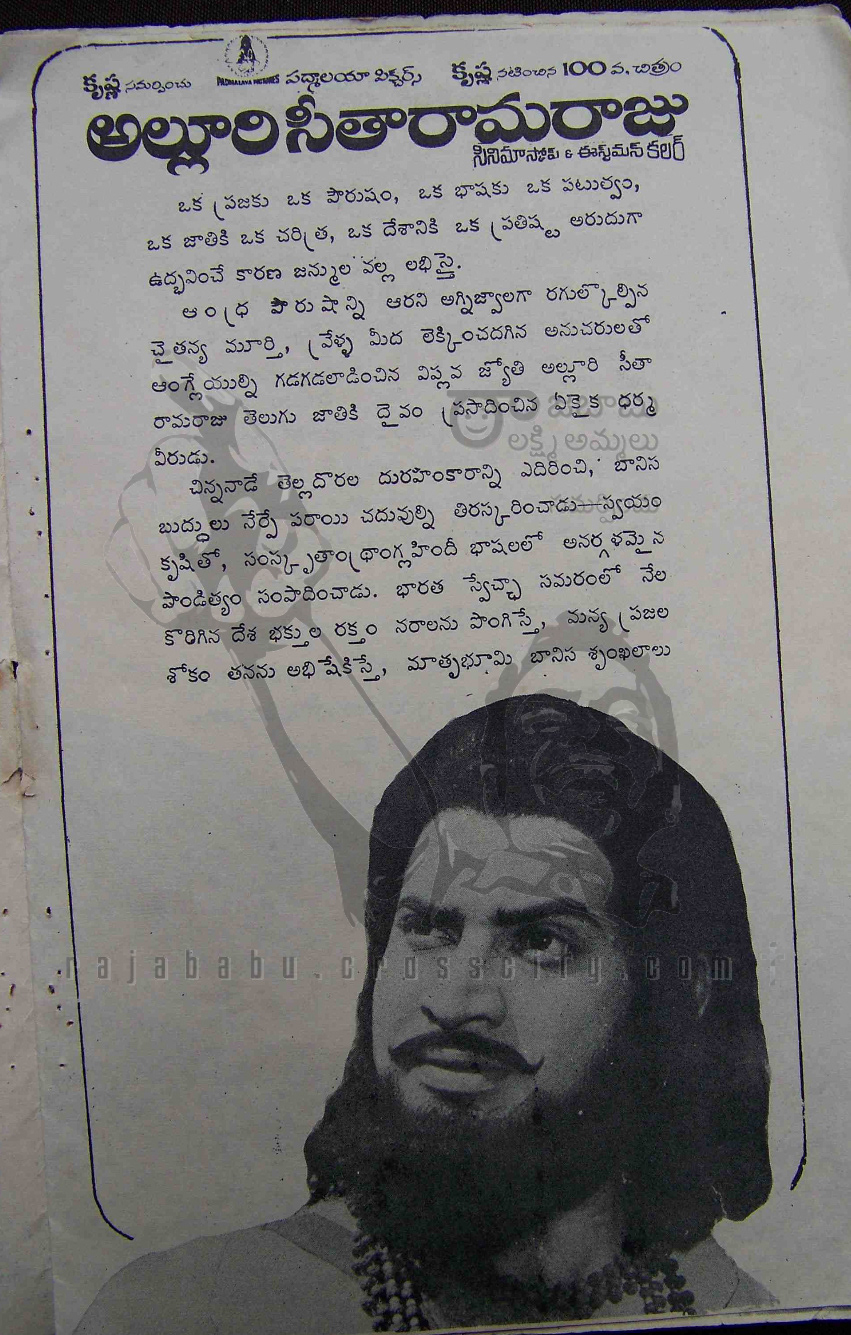 కృష్ణ సమర్పించు PADMALAYA PICTURES పద్మాలయా పిక్చర్స్ కృష్ణ నటించిన 100 వ. చిత్రం
అల్లూరి సీతారామరాజు
సినిమాస్కోప్ & ఈస్ట్‌మన్ కలర్
ఒక ప్రజకు ఒక పౌరుషం, ఒక భాషకు ఒక పటుత్వం,
ఒక జాతికి ఒక చరిత్ర, ఒక దేశానికి ఒక ప్రతిష్ట అరుదుగా
ఉద్భవించే కారణ జన్ముల వల్ల లభిస్తై.
ఆంధ్ర పౌరుషాన్ని ఆరని అగ్నిజ్వాలగా రగుల్కొల్పిన
చైతన్య మూర్తి, వ్రేళ్ళ మీద లెక్కించదగిన అనుచరులతో
ఆంగ్లేయుల్ని గడగడలాడించిన విప్లవ జ్యోతి అల్లూరి సీతా
రామరాజు తెలుగు జాతికి దైవం ప్రసాదించిన ఏకైక ధర్మ
వీరుడు.
చిన్ననాడే తెల్లదొరల దురహంకారాన్ని ఎదిరించి, బానిస
బుద్ధులు నేర్పే పరాయి చదువుల్ని తిరస్కరించాడు—స్వయం
కృషితో, సంస్కృతాంధ్రాంగ్లహిందీ భాషలలో అనర్గళమైన
పాండిత్యం సంపాదించాడు. భారత స్వేచ్ఛా సమరంలో నేల
కొరిగిన దేశ భక్తుల రక్తం నరాలను పొంగిస్తే, మన్య ప్రజల
శోకం తనను అభిషేకిస్తే, మాతృభూమి బానిస శృంఖలాలు
లక్ష్మి అమ్మలు
rajababu.crosscity.com